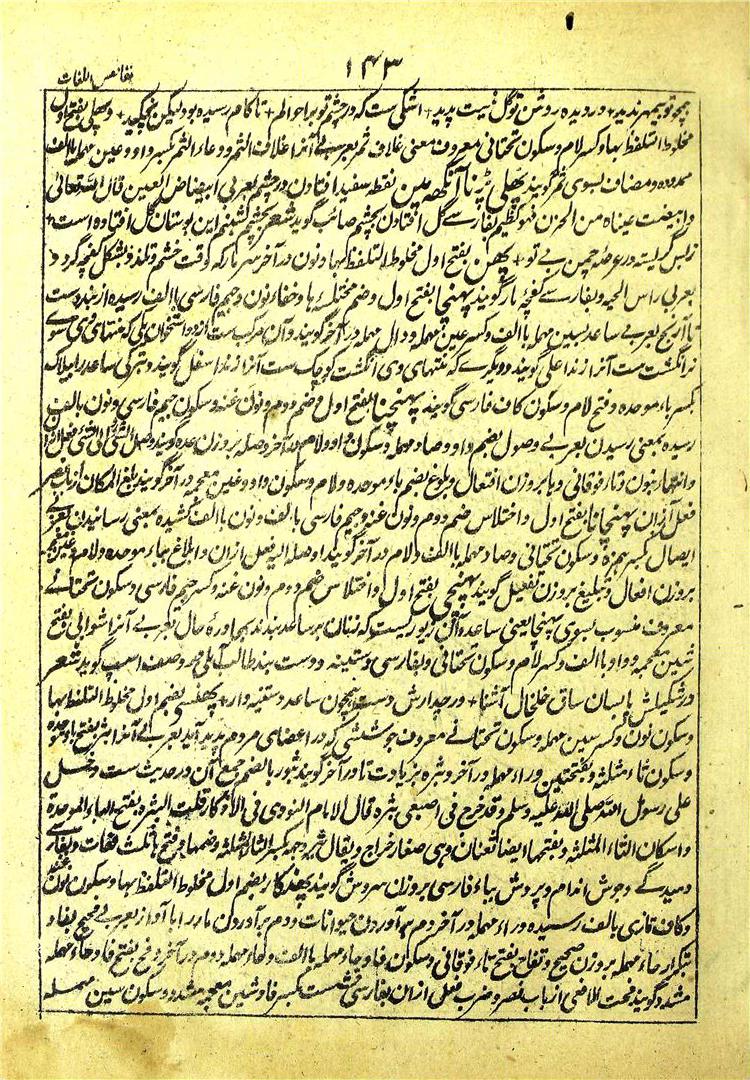 ۱۴۳
نفائس اللغات
همچو تو سیمبر ندید + در دیده روشن تو گل نیست پدید + اشکی ست که در چشم تو بر احوالم + تا کام رسیده بود لیکن نچکید + و پهلی بفتح اول
مخلوط التلفظ بها و کسر لام و سکون تحتانی معروف بمعنی غلاف ثمر بعربی آنرا غلاف الثمر و وعاء الثمر بکسر واو و عین مهمله بالف
ممدوده و مضاف بسوی ثمر گویند پهلی پڑنا آنکهه مین نقطه سفید افتادن در چشم بعربی ابیضاض العین قال الله تعالی
وابیضت عیناه من الحزن فهو کظیم بفارسی گل افتادن بچشم صائب گوید شعر بچشم شبنم این بوستان گل افتاده است
زبس گریسته در عرصه چمن بی تو + پهن بفتح اول مخلوط التلفظ بها و نون در آخر سر مار که وقت خشم و تلذذ بشکل کفچه گردد
بعربی راس الحیه و بفارسی کفچه مار گویند پهنچا بفتح اول و ضم مختلسه ها و خفاء نون و جیم فارسی بالف رسیده از بند دست
تا آرنج بعربی ساعد بسین مهمله بالف و کسر عین مهمله و دال مهمله در آخر گویند و آن مرکب ست از دو استخوان یکی که منتهای وی بسوی
نر انگشت ست آنرا زند اعلی گویند و دیگری که منتهای وی انگشت کوچک ست آنرا زند اسفل گویند و بترکی ساعد را بیلاک
بکسر باء موحده و فتح لام و سکون کاف فارسی گویند پهنچنا بفتح اول و ضم دوم و نون غنه و سکون جیم فارسی و نون بالف
رسیده بمعنی رسیدن بعربی وصول بضم واو و صاد مهمله و سکون واو و لام در آخر وصله بر وزن عده گویند وصل الشئ الی الشئ فعل ازان
وانتهاء بنون و تاء فوقانی و ها بر وزن افتعال و بلوغ بضم باء موحده و لام و سکون واو و غین معجمه در آخر گویند بلغ المکان از باب نصر
فعل ازان پهنچانا بفتح اول و اختلاس ضم دوم و نون غنه و جیم فارسی بالف و نون بالف کشیده بمعنی رسانیدن بعربی
ایصال بکسر همزه و سکون تحتانی و صاد مهمله بالف و لام در آخر گویند اوصله الیه فعل ازان و ابلاغ بباء موحده و لام و غین معجمه
بر وزن افعال و تبلیغ بر وزن تفعیل گویند پهنچی بفتح اول و اختلاس ضم دوم و نون غنه و کسر جیم فارسی و سکون تحتانی
معروف منسوب بسوی پهنچا یعنی ساعد و آن زیوریست که زنان بر ساعد بندند بمحاورهٔ حال بعربی آنرا شوابی بفتح
شین معجمه و واو بالف و کسر لام و سکون تحتانی و بفارسی دستینه و دست بند طالب آملی در وصف اسپ گوید شعر
در شکیلش پا بسان ساق خلخال آشنا + ور جدارش دست همچون ساعد دستینه وار + پهنسی بضم اول مخلوط التلفظ بها
و سکون نون و کسر سین مهمله و سکون تحتانی معروف جوششی که در اعضای مردم پدید آید بعربی آنرا بثر بفتح باء موحده
و سکون ثاء مثلثه و بفتحتین و راء مهمله در آخر و بثره بزیادت تا در آخر گویند بثور بالضم جمع آن در حدیث ست دخل
علی رسول الله صلی الله علیه وسلم وقد خرج فی اصبعی بثرة قال الامام النووی فی الاذکار قلت البثره بفتح الباء الموحدة
واسکان الثاء المثلثة و بفتحها ایضا لغتان وهی صغار خراج ویقال بثر وجهه بکسر الثاء المثلثه وضمها و فتحها ثلث لغات و بفارسی
دمیدگی و جوش اندام و پروش بباء فارسی بر وزن سروش گویند پهنکار بضم اول مخلوط التلفظ بها و سکون نون غنه
و کاف تازی بالف رسیده و راء مهمله در آخر دم بر آوردن حیوانات و دم بر آوردن مار را با آواز بعربی فحیح بفاء و
بتکرار حاء مهمله بر وزن صحیح و تفحاح بفتح تاء فوقانی و سکون فا و حاء مهمله بالف و حاء مهمله دوم در آخر و فح بفتح فا و حاء مهمله
مشدد گویند فحت الافعی از باب نصر و ضرب فعل ازان بفارسی فشست بکسر فا و شین معجمه مشدد و سکون سین مهمله